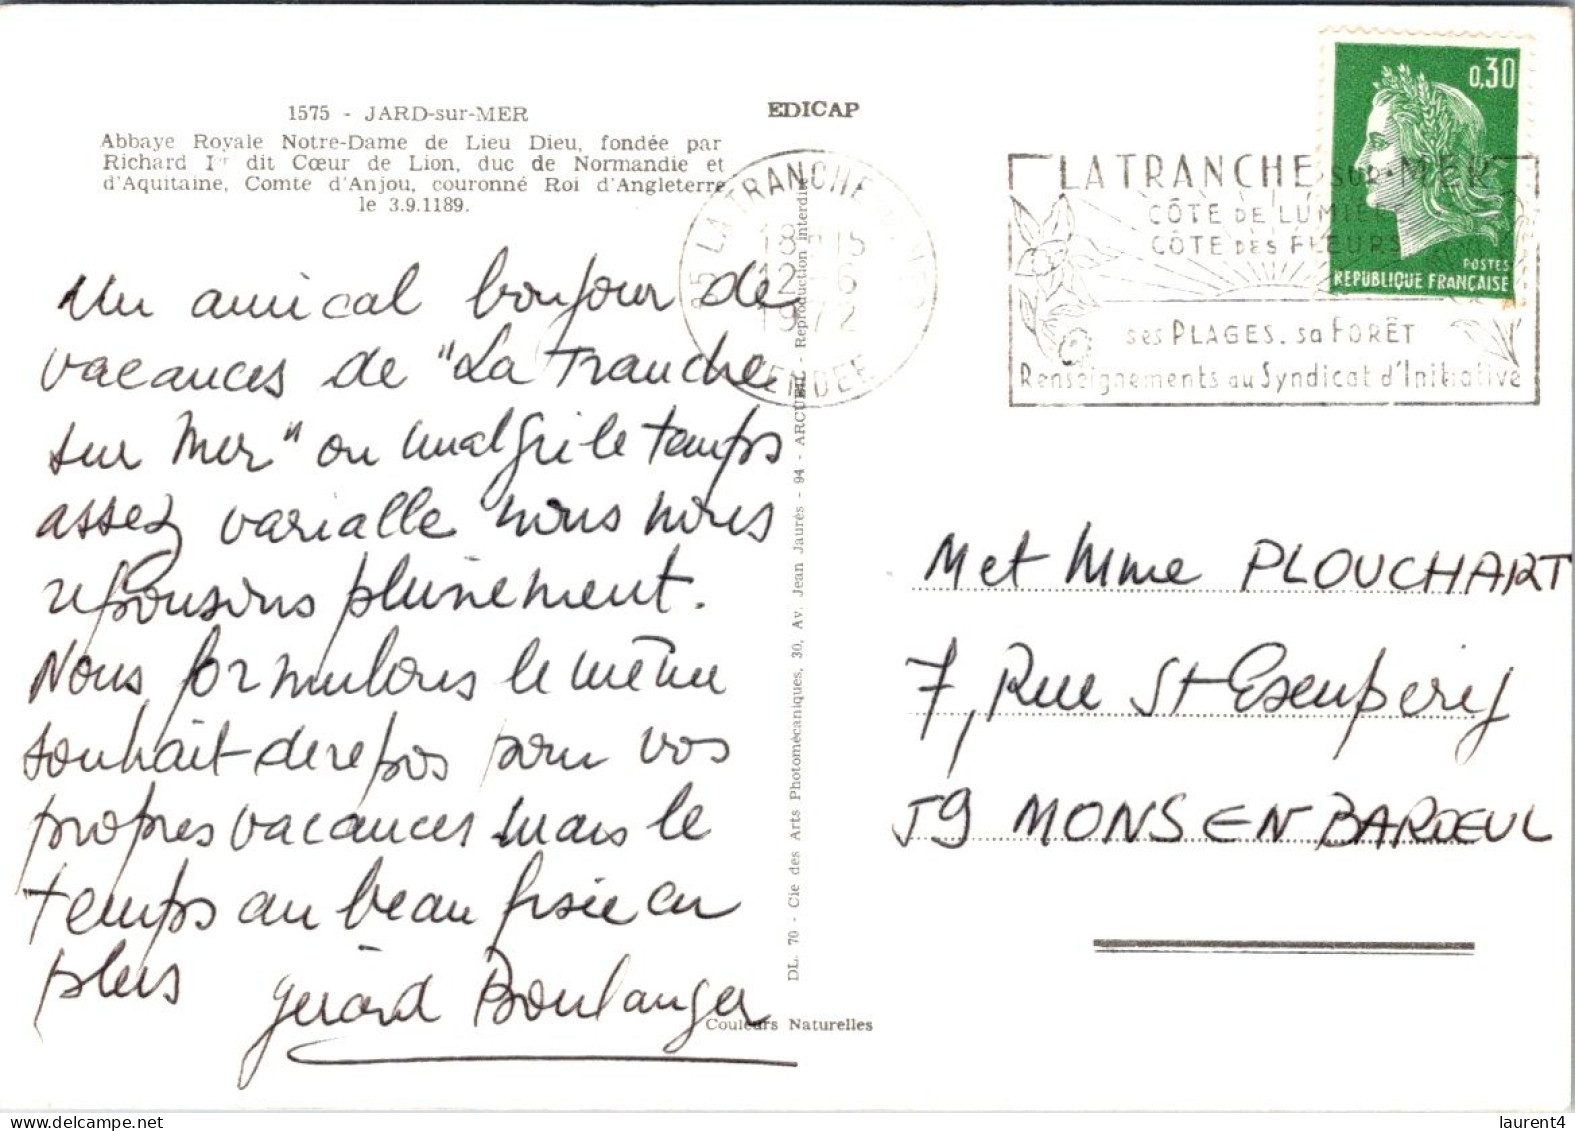 1575 - JARD-sur-MER
Abbaye Royale Notre-Dame de Lieu Dieu, fondée par
Richard Ier dit Cœur de Lion, duc de Normandie et
d'Aquitaine, Comte d'Anjou, couronné Roi d'Angleterre
le 3.9.1189.
EDICAP
Un amical bonjour de
vacances de "La Tranche
sur Mer" ou malgré le temps
assez variable nous nous
reposons pleinement.
Nous formulons le même
souhait de repos pour vos
propres vacances mais le
temps au beau fixe en
plus
Gérard Boulanger
DL. 70 - Cie des Arts Photomécaniques, 30, Av. Jean Jaurès - 94 - ARCUEIL - Reproduction interdite
Couleurs Naturelles
85 LA TRANCHE S/MER
18H15
12-6
1972
VENDEE
LA TRANCHE SUR-MER
CÔTE DE LUMIÈRE
CÔTE DES FLEURS
ses PLAGES. sa FORÊT
Renseignements au Syndicat d'Initiative
0,30
POSTES
REPUBLIQUE FRANÇAISE
M et Mme PLOUCHART
7, Rue St-Exeupery
59 MONS EN BAROEUL
laurent4